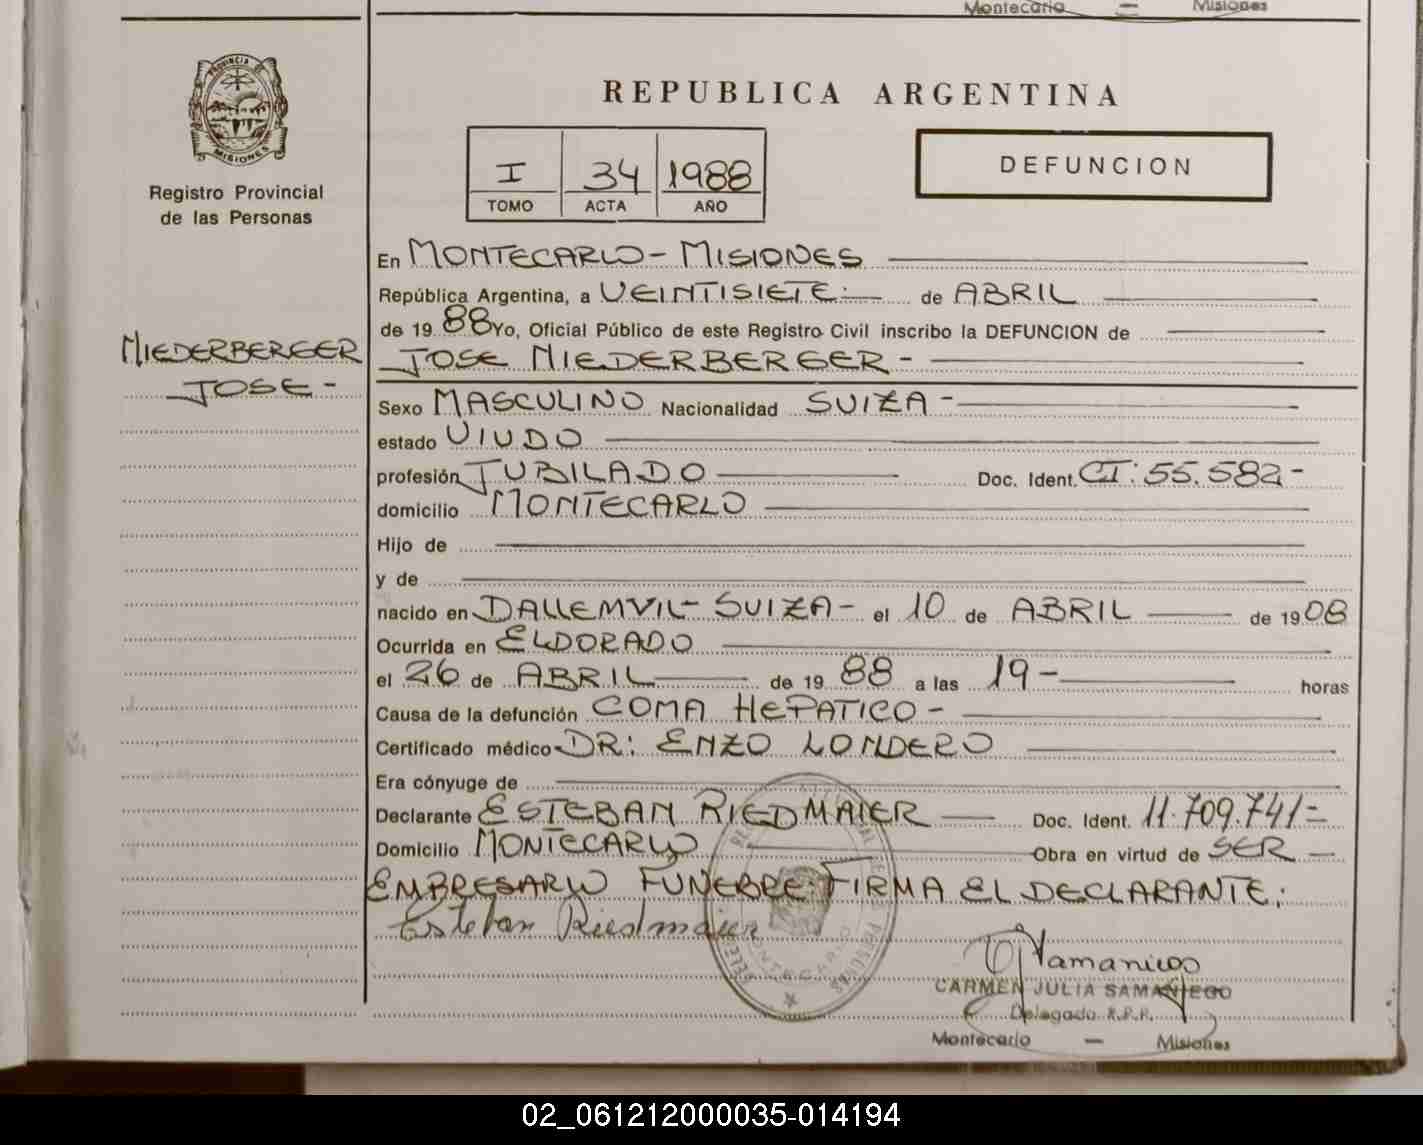 Montecarlo — Misiones
PROVINCIA DE
MISIONES
Registro Provincial
de las Personas
REPUBLICA ARGENTINA
I 34 1988
TOMO ACTA AÑO
DEFUNCION
NIEDERBERGER
JOSE-
En MONTECARLO-MISIONES
República Argentina, a VEINTISIETE.- de ABRIL
de 1988 Yo, Oficial Público de este Registro Civil inscribo la DEFUNCION de
JOSE NIEDERBERGER-
Sexo MASCULINO Nacionalidad SUIZA-
estado VIUDO
profesión JUBILADO Doc. Ident. CI:55.582-
domicilio MONTECARLO
Hijo de
y de
nacido en DALLEMVIL-SUIZA- el 10 de ABRIL de 1908
Ocurrida en ELDORADO
el 26 de ABRIL de 1988 a las 19- horas
Causa de la defunción COMA HEPATICO-
Certificado médico DR: ENZO LONDERO
Era cónyuge de
Declarante ESTEBAN RIEDMAIER Doc. Ident. 11.709.741-
Domicilio MONTECARLO Obra en virtud de SER
EMPRESARIO FUNEBRE: FIRMA EL DECLARANTE:
Esteban Riedmaier
MONTECARLO
CARMEN JULIA SAMANIEGO
Delegado R.P.P.
Montecarlo — Misiones
02_061212000035-014194